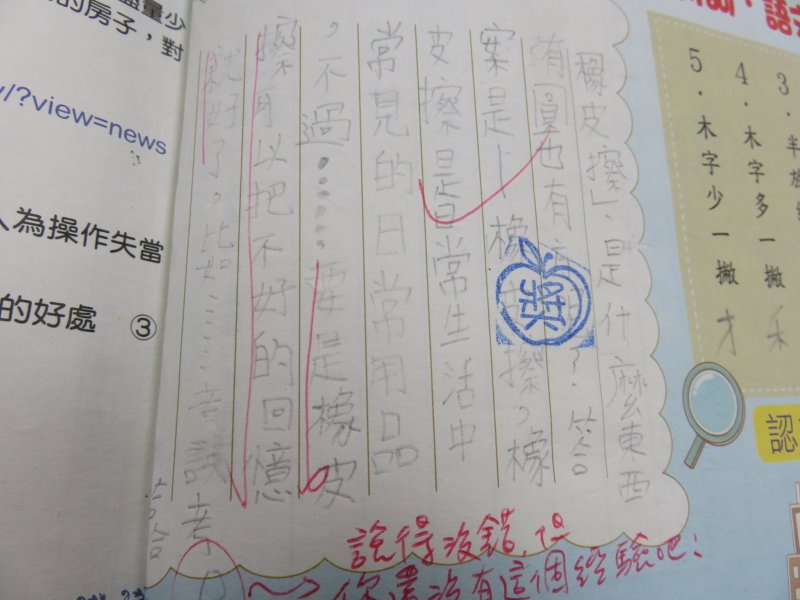 橡皮擦」、是什麼東西
有圓也有方
？答
案是―橡皮擦，橡
皮擦是是常生活中
常見的日常用品
，不過……，要是橡皮
擦可以把不好的回憶
就好了，比如……考試考
說得沒錯，但
你還沒有這個經驗吧！
獎
盡量少
的房子，對
/?view=news
人為操作失當
的好處 ③
3．半
4．木字多一撇 禾
5．木字少一撇 才
認